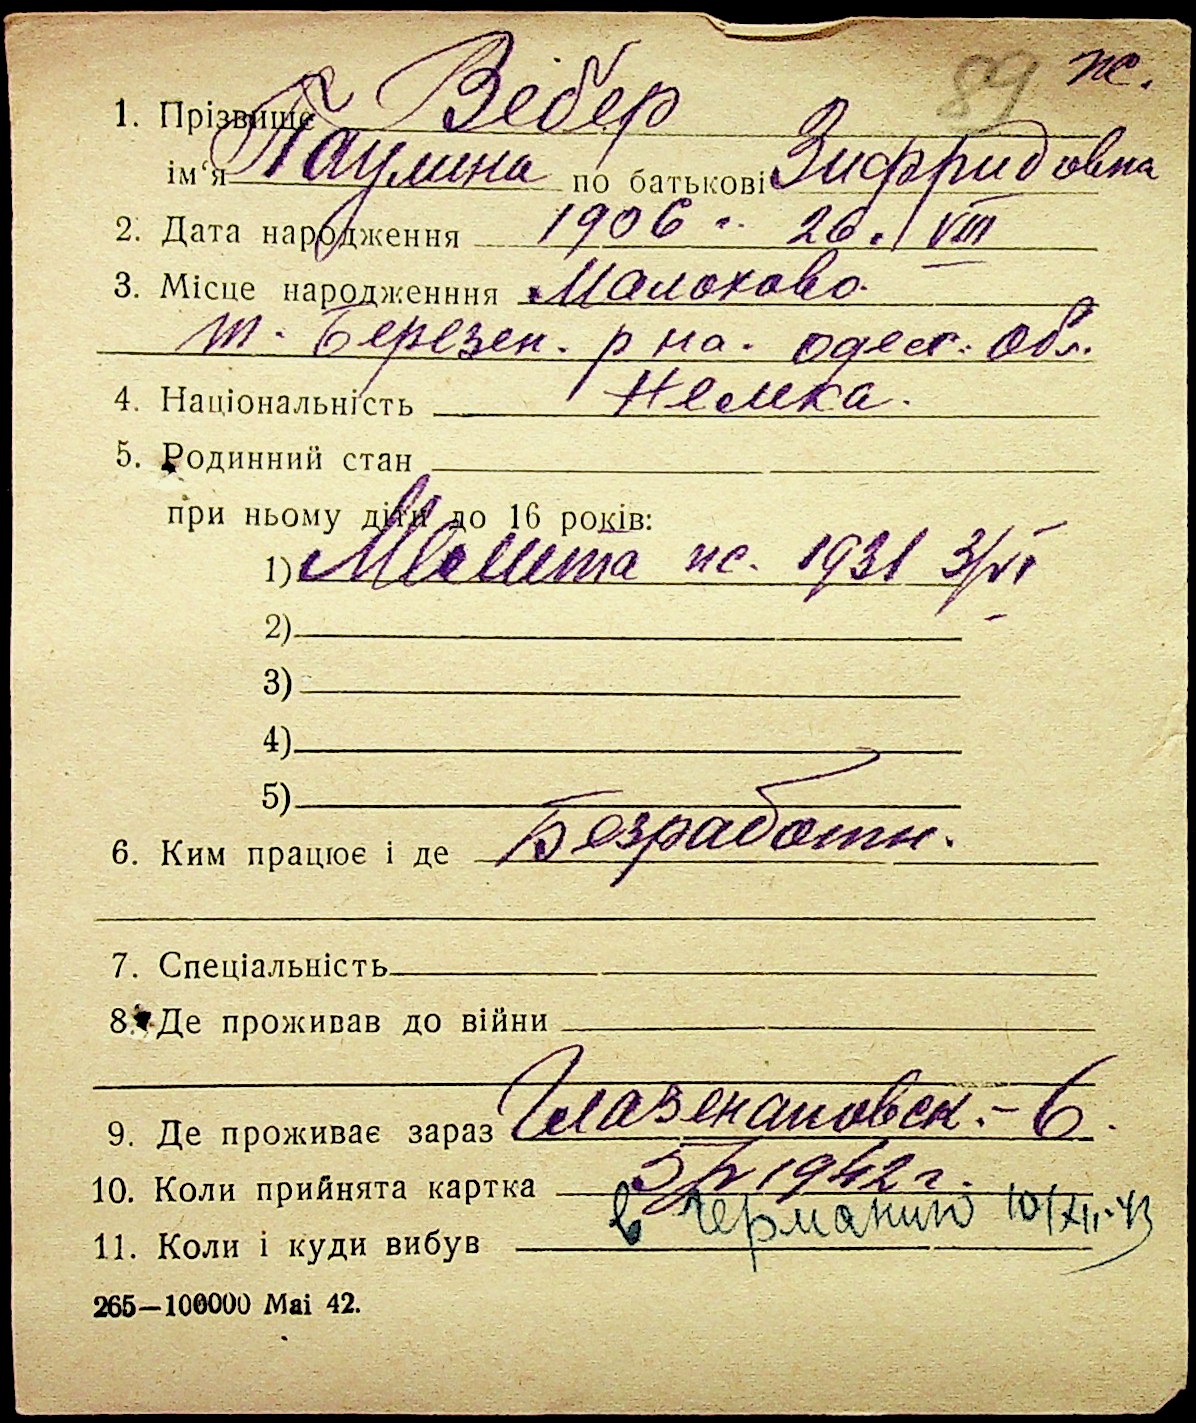 89 ж.
1. Прізвище Вебер
ім'я Паулина по батькові Зифридовна
2. Дата народження 1906 г. 26. VIII
3. Місце народженння
Березен. р на. одесс. Обл.
4. Національність Немка.
5. Родинний стан
при ньому діти до 16 років:
1) ж. 1931 3/VI
2)
3)
4)
5)
6. Ким працює і де Безработн.
7. Спеціальність
8. Де проживав до війни
9. Де проживає зараз Глазенаповск. - 6.
10. Коли прийнята картка 1942 г.
11. Коли і куди вибув в Германию 10/XII-43
265—100000 Mai 42.